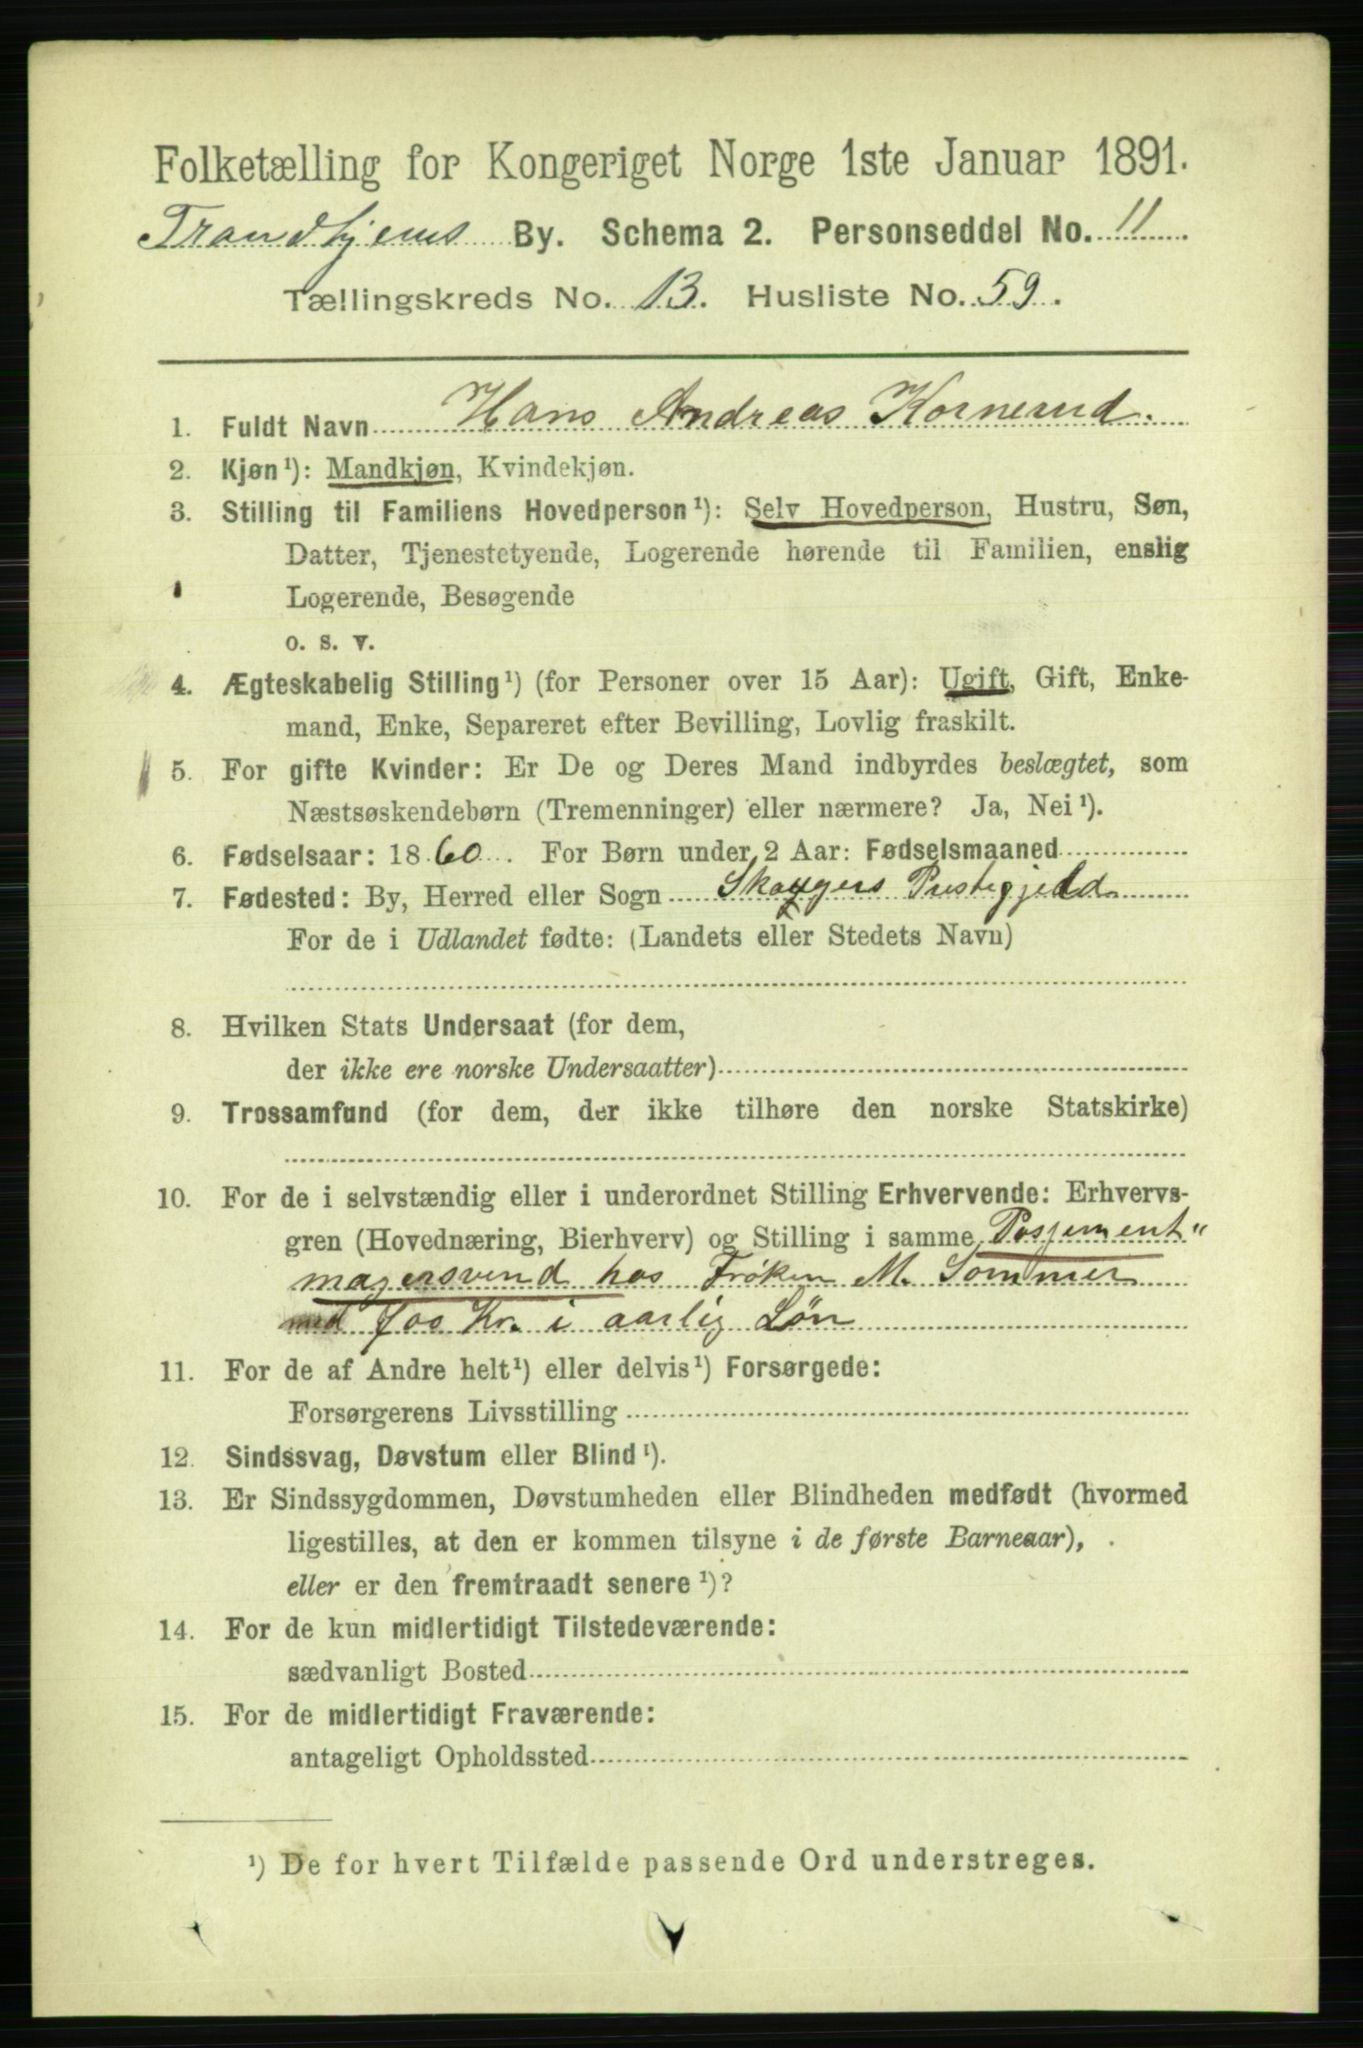 Folketælling for Kongeriget Norge 1ste Januar 1891.
Trondhjems By. Schema 2. Personseddel No. 11
Tællingskreds No. 13. Husliste No. 59.
1. Fuldt Navn Hans Andreas Kornerud.
2. Kjøn¹): Mandkjøn, Kvindekjøn.
3. Stilling til Familiens Hovedperson¹): Selv Hovedperson, Hustru, Søn,
Datter, Tjenestetyende, Logerende hørende til Familien, enslig
Logerende, Besøgende
o. s. v.
4. Ægteskabelig Stilling¹) (for Personer over 15 Aar): Ugift, Gift, Enke-
mand, Enke, Separeret efter Bevilling, Lovlig fraskilt.
5. For gifte Kvinder: Er De og Deres Mand indbyrdes beslægtet, som
Næstsøskendebørn (Tremenninger) eller nærmere? Ja, Nei¹).
6. Fødselsaar: 1860. For Børn under 2 Aar: Fødselsmaaned
7. Fødested: By, Herred eller Sogn Skoggers Prestegjeld
For de i Udlandet fødte: (Landets eller Stedets Navn)
8. Hvilken Stats Undersaat (for dem,
der ikke ere norske Undersaatter)
9. Trossamfund (for dem, der ikke tilhøre den norske Statskirke)
10. For de i selvstændig eller i underordnet Stilling Erhvervende: Erhvervs-
gren (Hovednæring, Bierhverv) og Stilling i samme Possement"
magersvend hos Frøken M. Sommer
med 700 Kr. i aarlig Løn
11. For de af Andre helt¹) eller delvis¹) Forsørgede:
Forsørgerens Livsstilling
12. Sindssvag, Døvstum eller Blind¹).
13. Er Sindssygdommen, Døvstumheden eller Blindheden medfødt (hvormed
ligestilles, at den er kommen tilsyne i de første Barneaar),
eller er den fremtraadt senere¹)?
14. For de kun midlertidigt Tilstedeværende:
sædvanligt Bosted
15. For de midlertidigt Fraværende:
antageligt Opholdssted
¹) De for hvert Tilfælde passende Ord understreges.